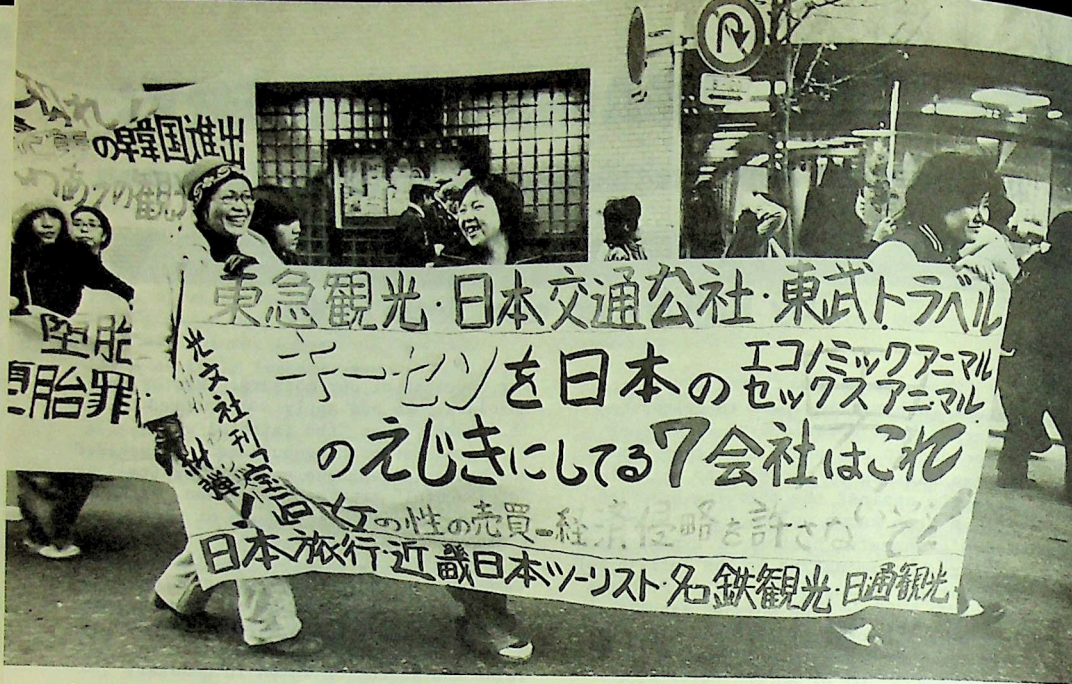 の韓国進出
の観
堕胎
堕胎罪
東急観光・日本交通公社・東武トラベル
キーセンを日本のエコノミックアニマル
セックスアニマル
のえじきにしてる7会社はこれ
女の性の売買＝経済侵略を許さないぞ!
日本旅行・近畿日本ツーリスト・名鉄観光・日通観光
光文社刊